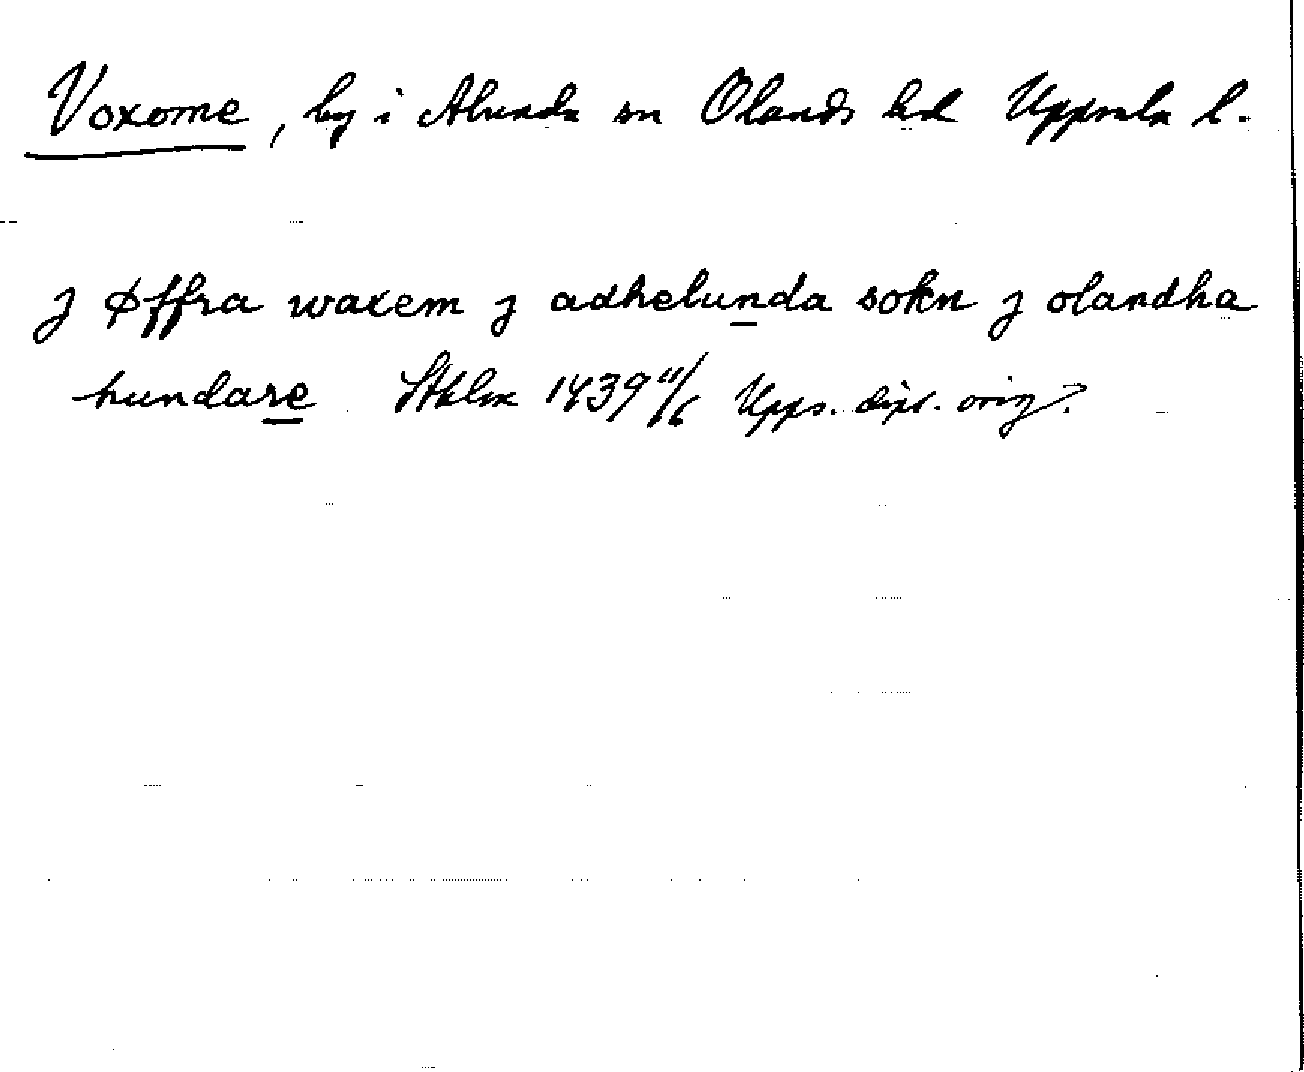 Voxome, by i Alunda sn Olands hd Uppsala l.
j øffra waxem j adhelunda sokn j olandha
hundare Sthlm 1439 11/6 Upps. dipl. orig.